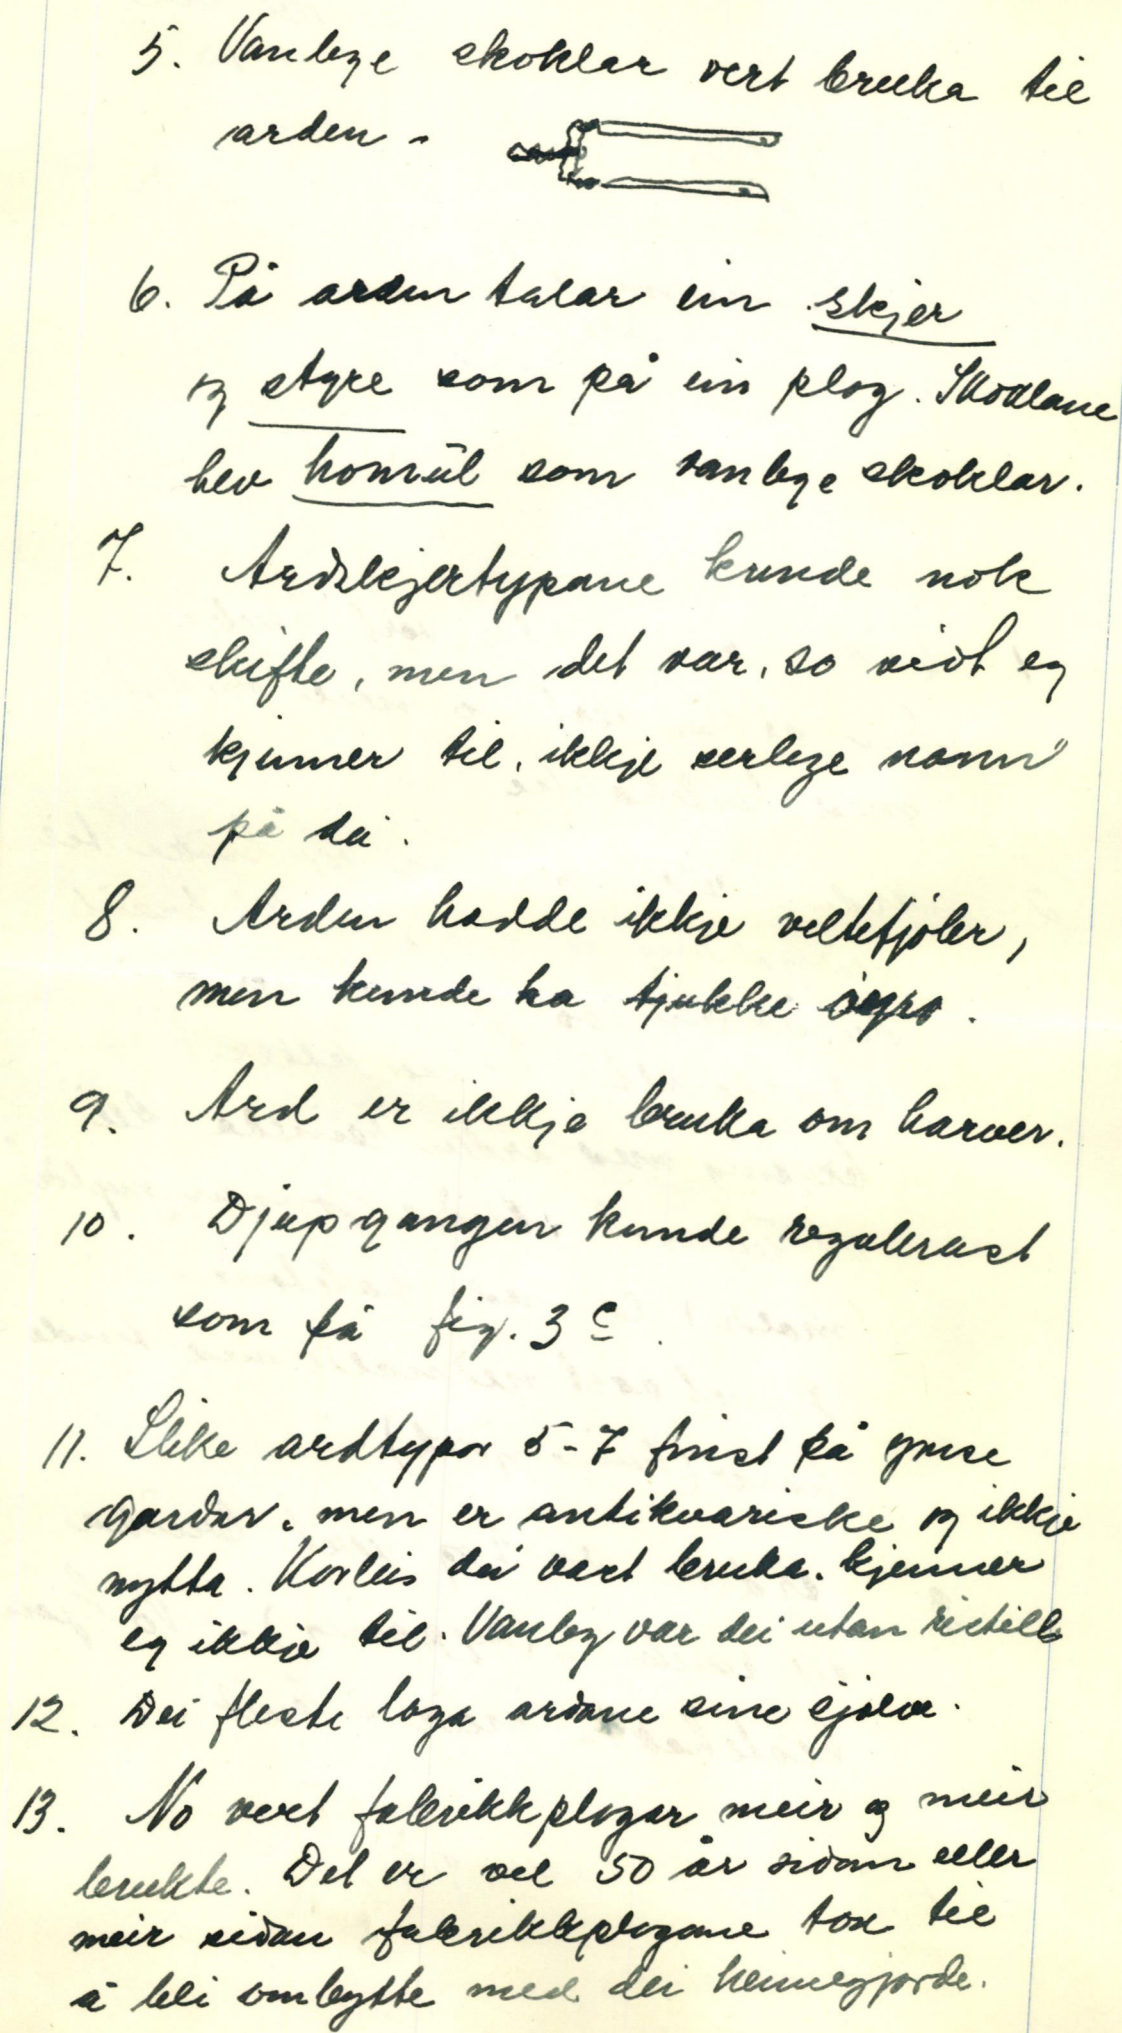 5. Vanlege skoklar vert bruka til
arden -
6. På arden talar ein skjer
og styre som på ein plog. Skoklane
hev homül som vanlege skoklar.
7. Ardskjertypane kunde nok
skifte, men det var, so vidt eg
kjenner til, ikkje serlege namn
på dei.
8. Arden hadde ikkje veltefjøler,
men kunde ha tjukke
9. Ard er ikkje bruka om harver.
10. Djupgangen kunde regulerast
som på fig. 3 c
11. Slike ardtypor 5-7 finst på ymse
gardar, men er antikvariske og ikkje
nytta. Korleis dei vart bruka, kjenner
eg ikkje til. Vanleg var dei utan ristill
12. Dei fleste laga ardane sine sjølve.
13. No vert fabrikkplogar meir og meir
brukte. Det er vel 50 år sidan eller
meir sidan fabrikkplogane tok til
å bli ombytte med dei heimegjorde.